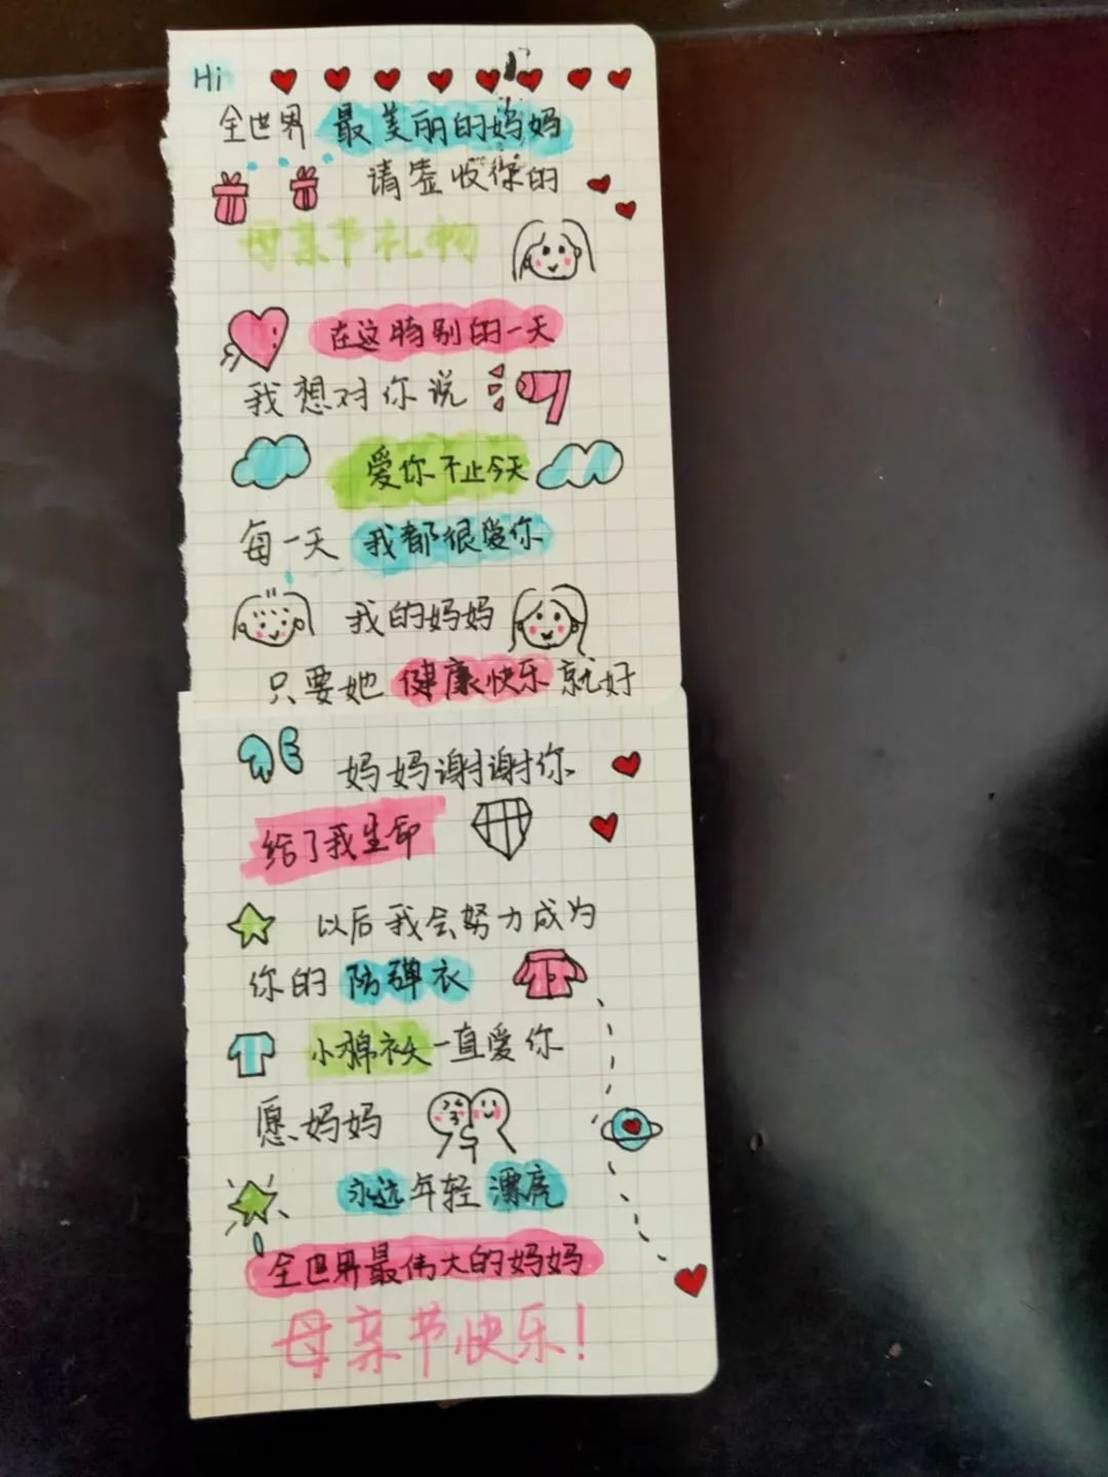 Hi
全世界 最美丽的妈妈
请签收你的
母亲节礼物
在这特别的一天
我想对你说
爱你不止今天
每一天 我都很爱你
我的妈妈
只要她 健康快乐 就好
妈妈谢谢你
给了我生命
以后我会努力成为
你的 防弹衣
小棉袄一直爱你
愿妈妈
永远年轻漂亮
全世界最伟大的妈妈
母亲节快乐！